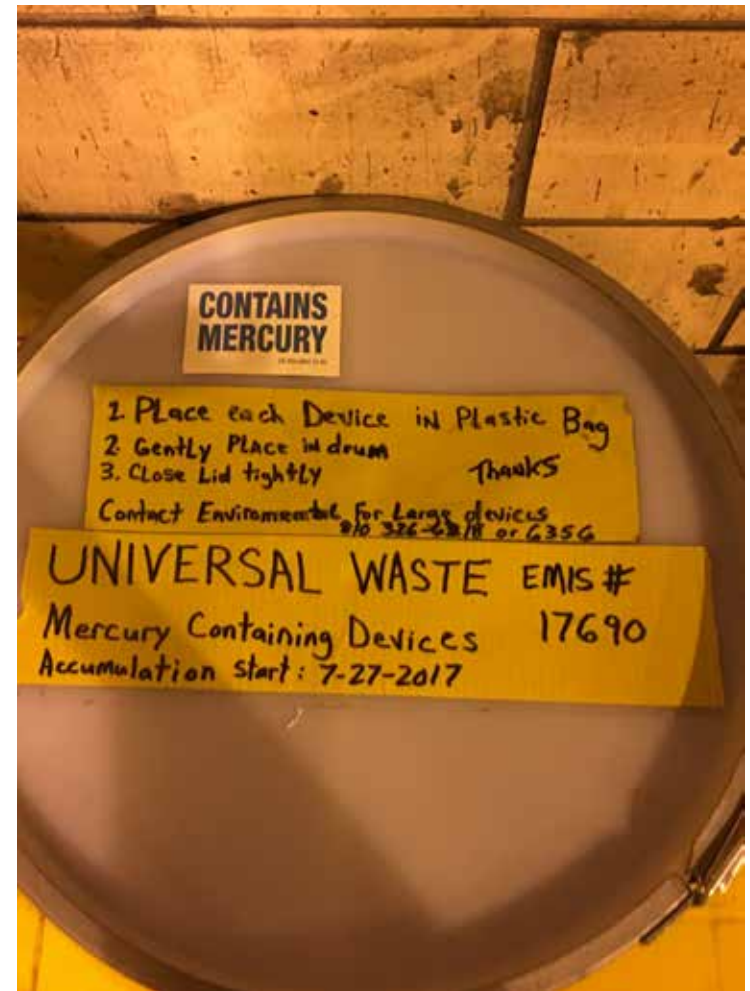 CONTAINS
MERCURY
1. PLace each Device in Plastic Bag
2. Gently PLAce in drum
3. CLose Lid tightLy Thanks
Contact Enviromental For Large devices
810 326- or 6356
UNIVERSAL WASTE EMIS #
Mercury Containing Devices 17690
Accumulation start: 7-27-2017